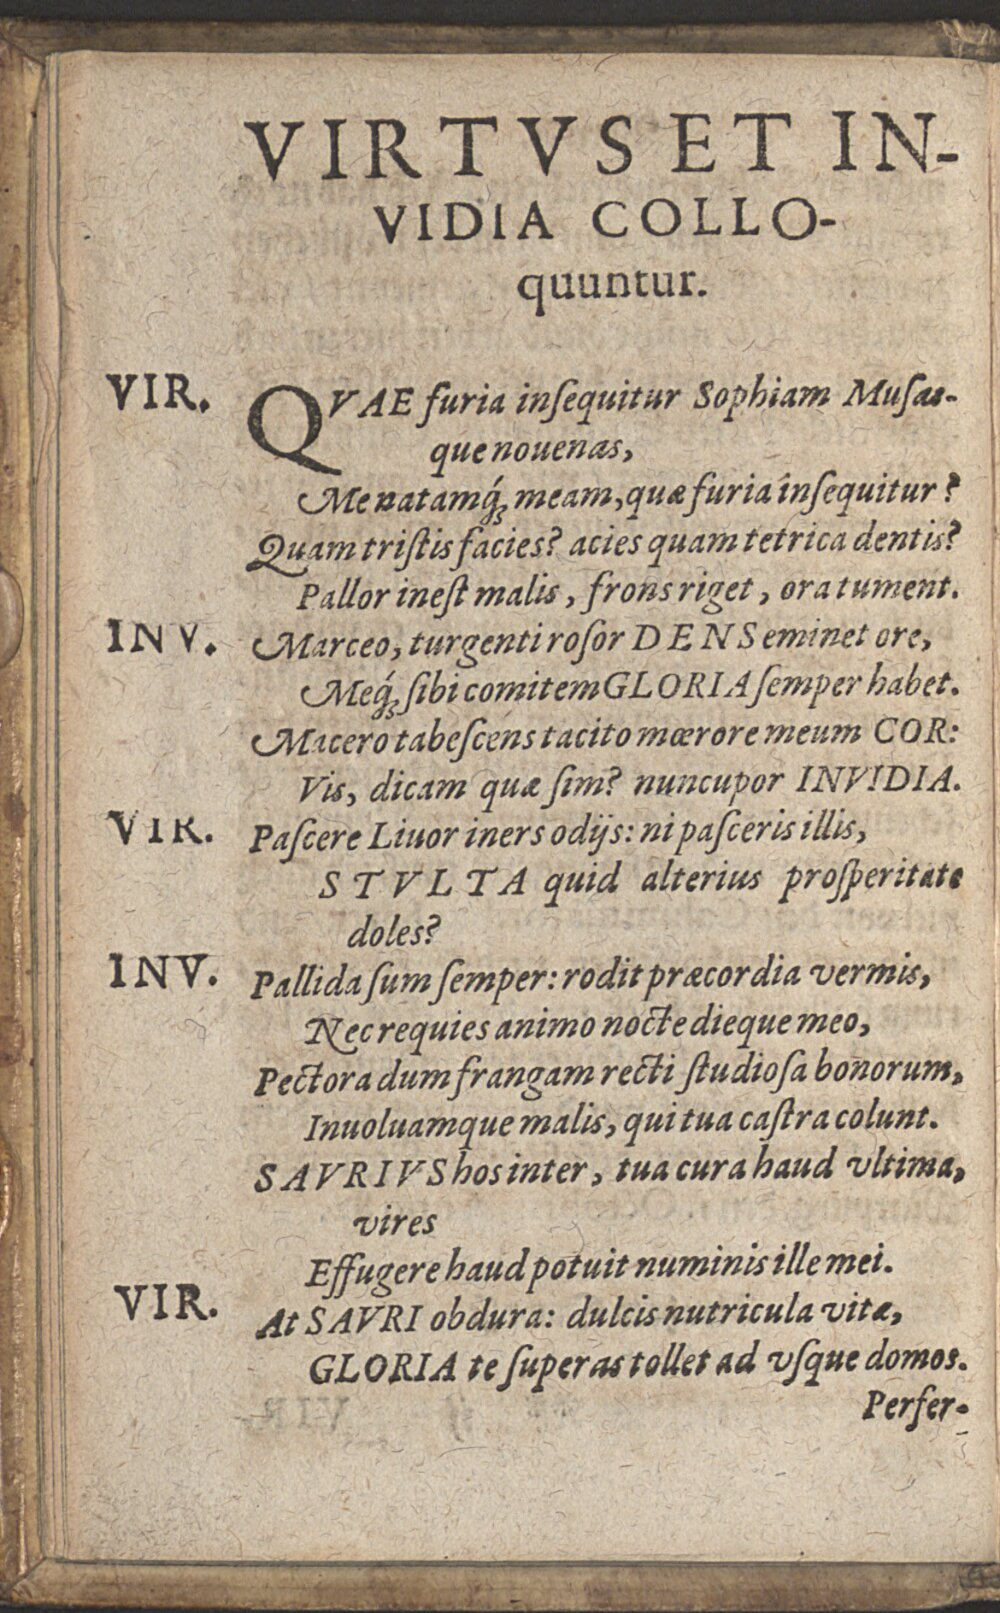 VIRTVS ET IN-
VIDIA COLLO-
quuntur.
VIR. QVAE furia inſequitur Sophiam Muſas-
que nouenas,
Me natamq́; meam, quæ furia inſequitur?
Quam triſtis facies? acies quam tetrica dentis?
Pallor ineſt malis, frons riget, ora tument.
INV. Marceo, turgenti roſor DENS eminet ore,
Meq́; ſibi comitem GLORIA ſemper habet.
Macero tabeſcens tacito mœrore meum COR:
Vis, dicam quæ ſim? nuncupor INVIDIA.
VIR. Paſcere Liuor iners odijs: ni paſceris illis,
STVLTA quid alterius proſperitate
doles?
INV. Pallida ſum ſemper: rodit præcordia vermis,
Nec requies animo nocte dieque meo,
Pectora dum frangam recti ſtudioſa bonorum,
Inuoluamque malis, qui tua caſtra colunt.
SAVRIVS hos inter, tua cura haud vltima,
vires
Effugere haud potuit numinis ille mei.
VIR. At SAVRI obdura: dulcis nutricula vitæ,
GLORIA te ſuperas tollet ad vſque domos.
Perfer-